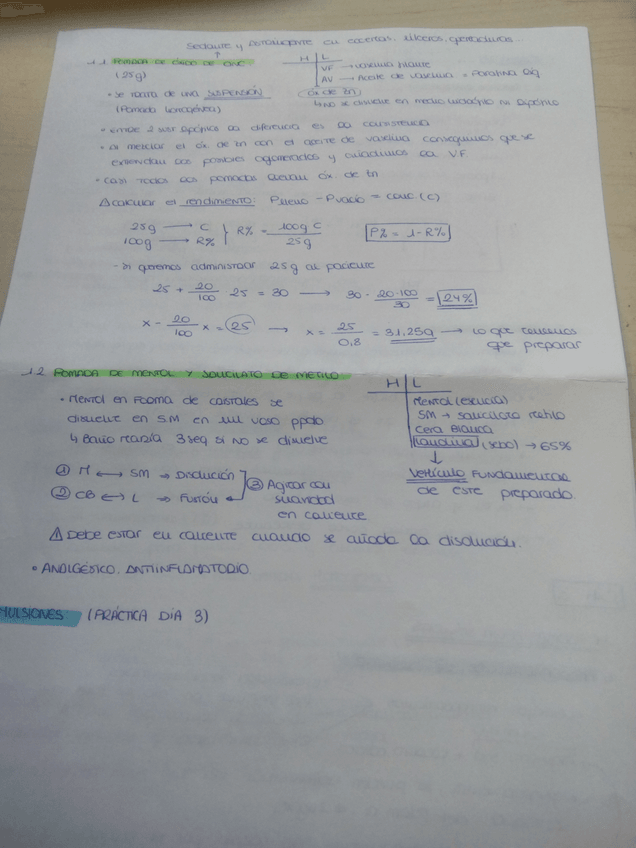 Secante y astringente en escertas, úlceras, grietaduras...
1.1. POMADA DE ÓXIDO DE CINC. H L
(25g) VF → vaselina filante
AV → Aceite de vaselina = Parafina líq
• se trata de una SUSPENSIÓN óx de Zn
(Pomada heterogénea) ↳ No se disuelve en medio hidrófilo ni lipófilo
• entre 2 sust lipófilas la diferencia es la consistencia
• al mezclar el óx. de Zn con el aceite de vaselina conseguimos que se
extiendan las aglomerados y añadimos la V.F.
• casi todas las pomadas llevan óx. de Zn
⚠ calcular el rendimiento: Plleno - Pvacío = cant (C)
25g → C } R% = 100g C / 25g P% = 1-R%
100g → R%
- Si queremos administrar 25g al paciente
25 + 20/100 · 25 = 30 → 30 · 20·100/30 = 24%
x - 20/100 x = 25 → x = 25/0,8 = 31,25g → lo que tenemos
que preparar
1.2. POMADA DE MENTOL Y SALICILATO DE METILO. H L
• Mentol en forma de cristales se Mentol (esencia)
disuelve en SM en un vaso ppdo SM → salicilato metilo
↳ Baño María 3 seg si no se disuelve Cera Blanca
Lanolina (sebo) → 65%
① M ↔ SM ⇒ Disolución ③ Agitar con Vehículo FUNDAMENTAL
② CB ↔ L ⇒ Fusión suavidad de este preparado.
en caliente
⚠ Debe estar en caliente cuando se añada la disolución.
• ANALGÉSICO. ANTIINFLAMATORIO.
MULSIONES (PRÁCTICA DÍA 3)